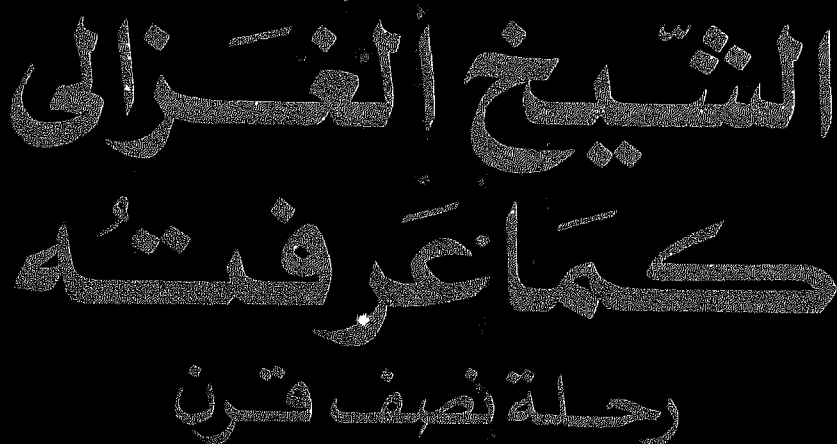 الشّيخ الغَزالى
كمَا عَرفتُه
رحلة نصف قرن